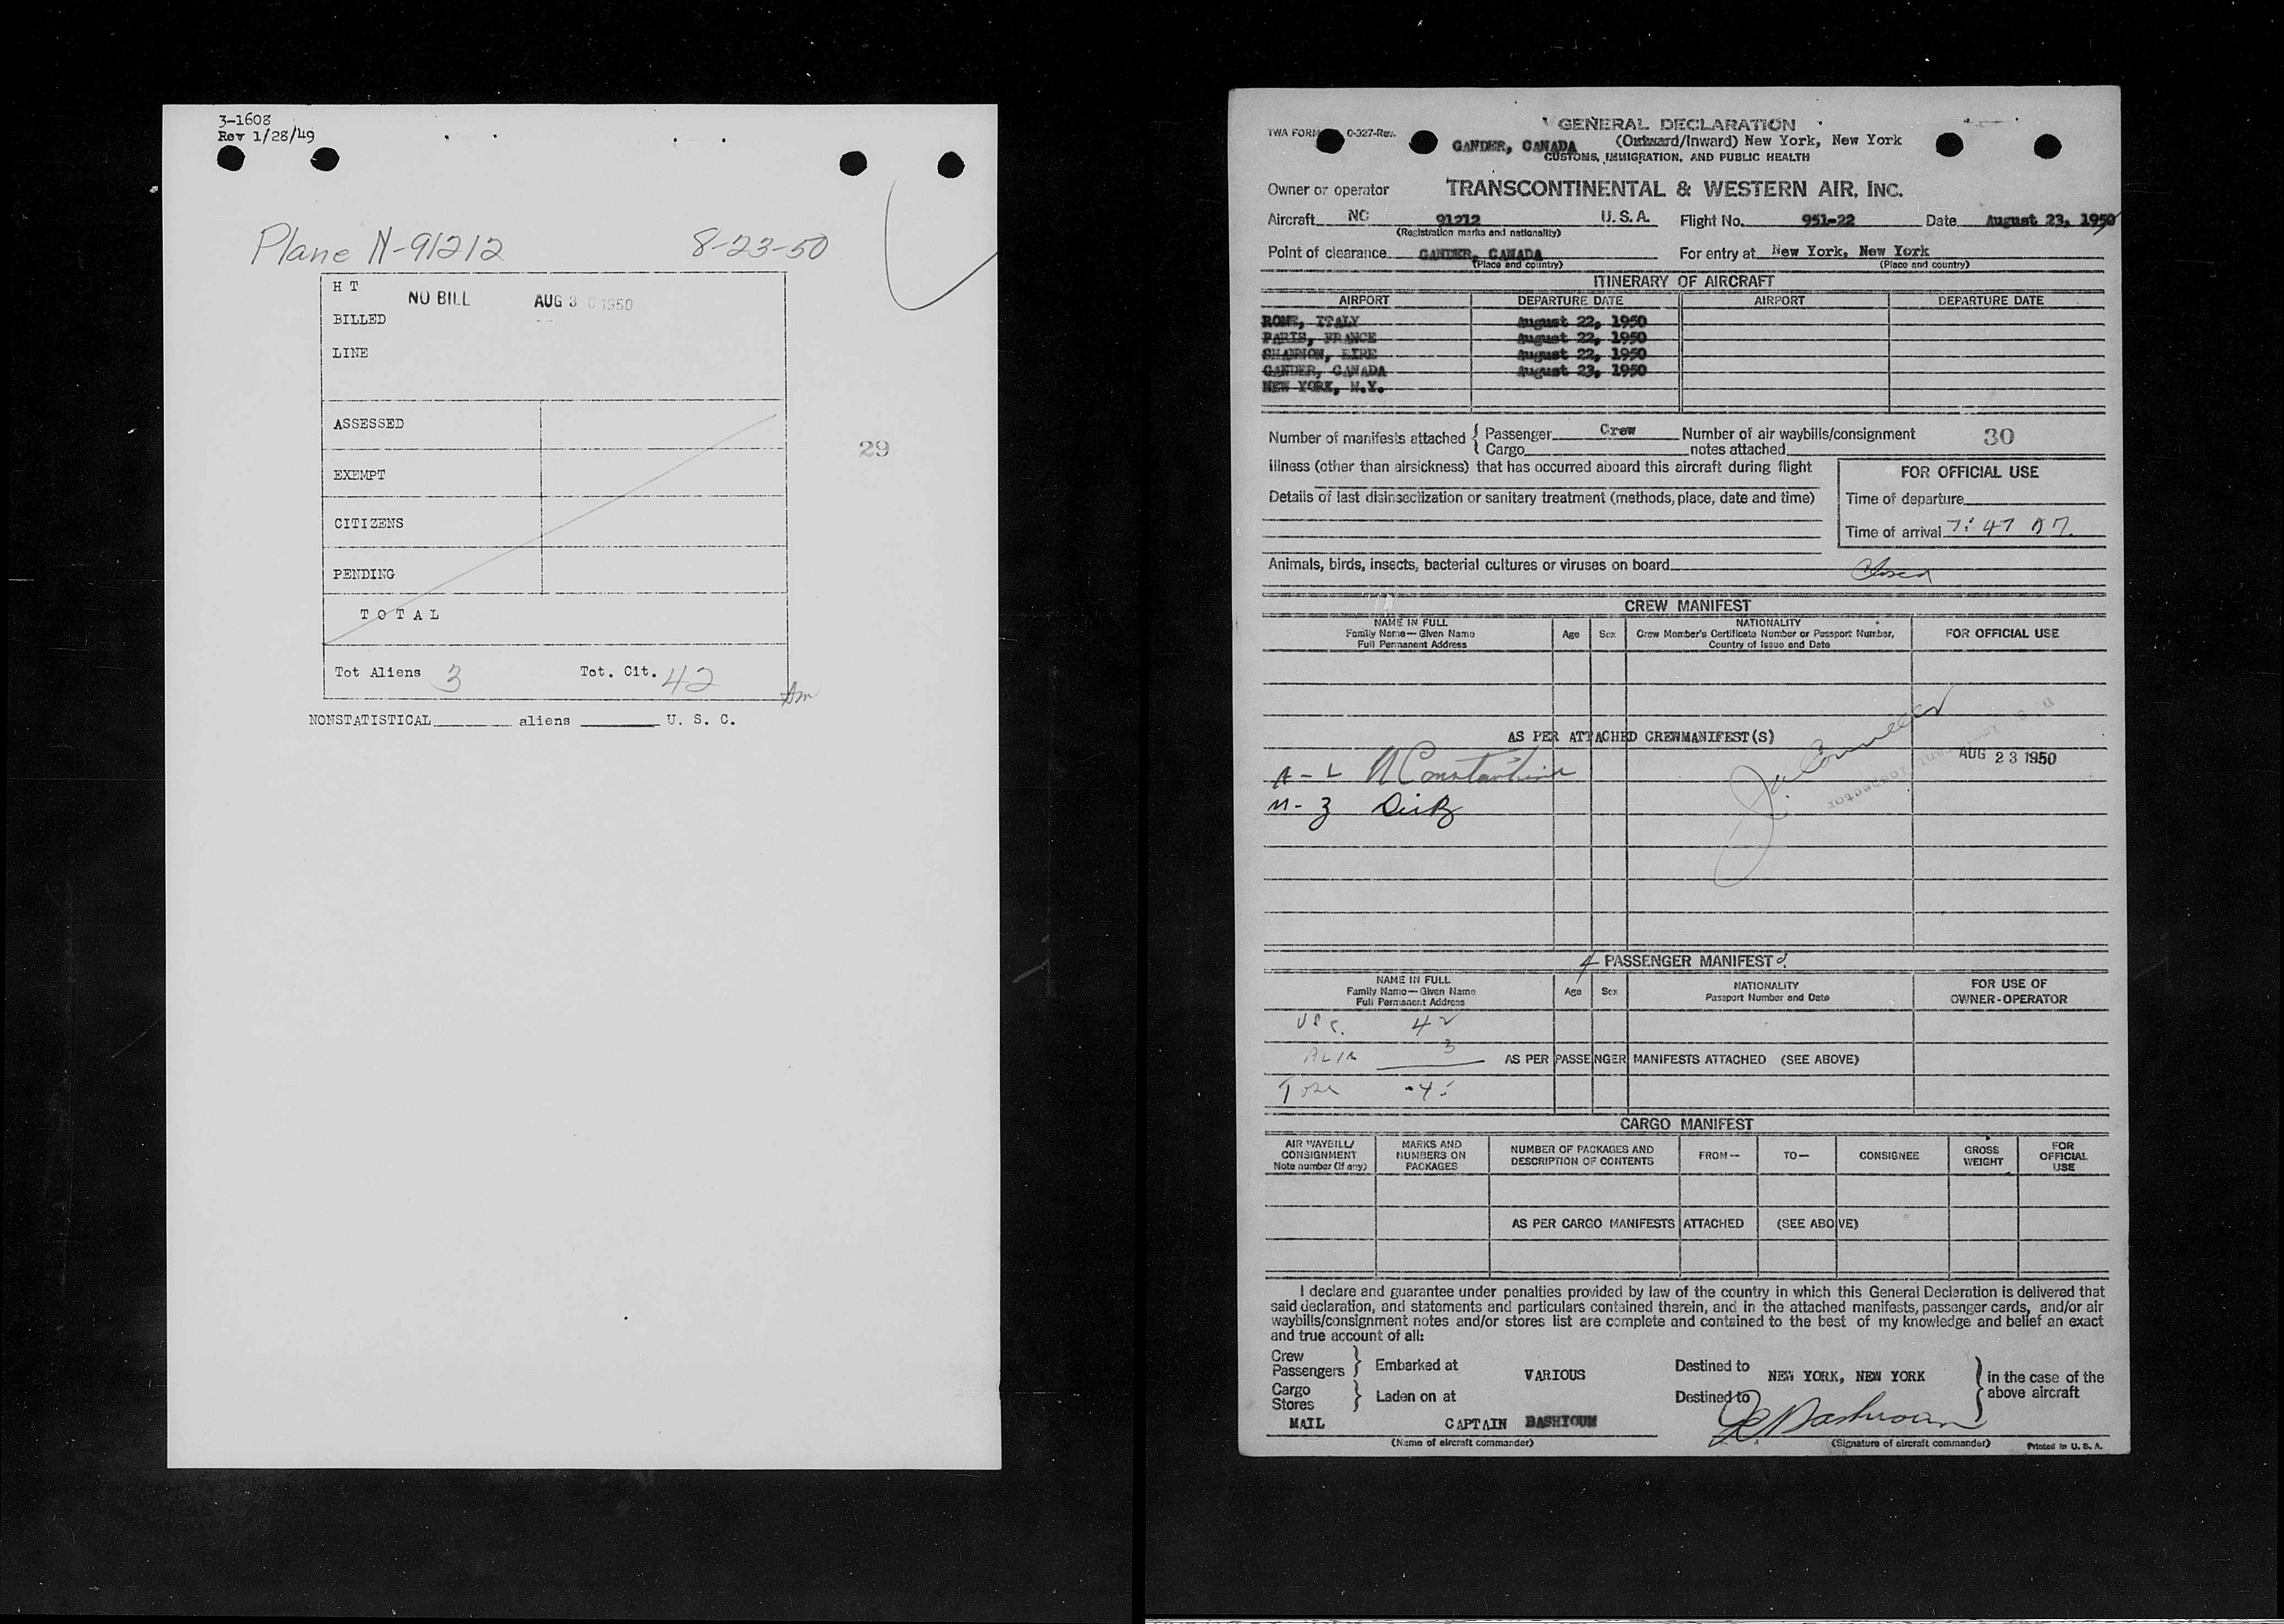 3-1608
Rev 1/28/49
Plane N-91212 8-23-50
H T
NO BILL AUG 3 0 1950
BILLED
LINE
ASSESSED
29
EXEMPT
CITIZENS
PENDING
T O T A L
Tot Aliens 3 Tot. Cit. 42
NONSTATISTICAL aliens U. S. C.
GENERAL DECLARATION
TWA FORM 0-327-Rev.
GANDER, CANADA (Outward/Inward) New York, New York
CUSTOMS, IMMIGRATION, AND PUBLIC HEALTH
Owner or operator TRANSCONTINENTAL & WESTERN AIR, INC.
Aircraft NC 91212 U.S.A. Flight No. 951-22 Date August 23, 1950
(Registration marks and nationality)
Point of clearance GANDER, CANADA For entry at New York, New York
(Place and country) (Place and country)
ITINERARY OF AIRCRAFT
AIRPORT DEPARTURE DATE AIRPORT DEPARTURE DATE
ROME, ITALY August 22, 1950
PARIS, FRANCE August 22, 1950
SHANNON, EIRE August 22, 1950
GANDER, CANADA August 23, 1950
NEW YORK, N.Y.
Number of manifests attached { Passenger Crew Number of air waybills/consignment 30
Cargo notes attached
Illness (other than airsickness) that has occurred aboard this aircraft during flight
FOR OFFICIAL USE
Details of last disinsectization or sanitary treatment (methods, place, date and time)
Time of departure
Time of arrival 7:47 AM
Animals, birds, insects, bacterial cultures or viruses on board
Closed
CREW MANIFEST
NAME IN FULL Family Name—Given Name Full Permanent Address Age Sex NATIONALITY Crew Member's Certificate Number or Passport Number, Country of Issue and Date FOR OFFICIAL USE
AS PER ATTACHED CREWMANIFEST(S)
AUG 23 1950
A - L N Constantine
Inspector
M - Z
PASSENGER MANIFEST
NAME IN FULL Family Name—Given Name Full Permanent Address Age Sex NATIONALITY Passport Number and Date FOR USE OF OWNER-OPERATOR
USC. 42
3
AS PER PASSENGER MANIFESTS ATTACHED (SEE ABOVE)
CARGO MANIFEST
AIR WAYBILL/ CONSIGNMENT Note number (if any) MARKS AND NUMBERS ON PACKAGES NUMBER OF PACKAGES AND DESCRIPTION OF CONTENTS FROM— TO— CONSIGNEE GROSS WEIGHT FOR OFFICIAL USE
AS PER CARGO MANIFESTS ATTACHED (SEE ABOVE)
I declare and guarantee under penalties provided by law of the country in which this General Declaration is delivered that
said declaration, and statements and particulars contained therein, and in the attached manifests, passenger cards, and/or air
waybills/consignment notes and/or stores list are complete and contained to the best of my knowledge and belief an exact
and true account of all:
Crew
Passengers } Embarked at VARIOUS Destined to NEW YORK, NEW YORK } in the case of the
Cargo
Stores } Laden on at Destined to above aircraft
MAIL CAPTAIN BASHIOUM
(Name of aircraft commander) (Signature of aircraft commander) Printed in U. S. A.